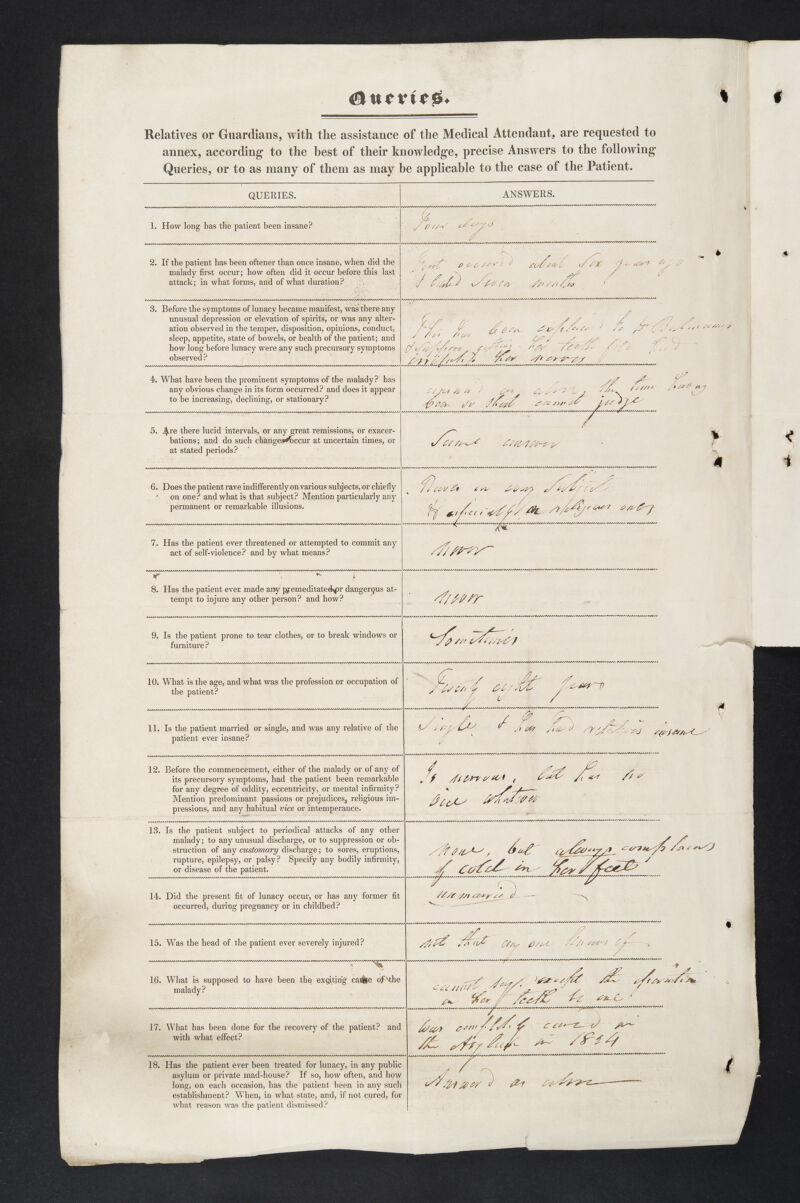 Queries.
Relatives or Guardians, with the assistance of the Medical Attendant, are requested to
annex, according to the best of their knowledge, precise Answers to the following
Queries, or to as many of them as may be applicable to the case of the Patient.
QUERIES.
ANSWERS.
1. How long has the patient been insane?
Four days
2. If the patient has been oftener than once insane, when did the
malady first occur; how often did it occur before this last
attack; in what forms, and of what duration?
First occurred about Six years ago
& lasted Seven months
3. Before the symptoms of lunacy became manifest, was there any
unusual depression or elevation of spirits, or was any alter-
ation observed in the temper, disposition, opinions, conduct,
sleep, appetite, state of bowels, or health of the patient; and
how long before lunacy were any such precursory symptoms
observed?
This has been explained to Dr
her teeth
her nerves
4. What have been the prominent symptoms of the malady? has
any obvious change in its form occurred? and does it appear
to be increasing, declining, or stationary?
as above, the time having
been so short cannot judge
5. Are there lucid intervals, or any great remissions, or exacer-
bations; and do such changes occur at uncertain times, or
at stated periods?
Same answer
6. Does the patient rave indifferently on various subjects, or chiefly
on one? and what is that subject? Mention particularly any
permanent or remarkable illusions.
Raves on every Subject
& especially on religious ones
7. Has the patient ever threatened or attempted to commit any
act of self-violence? and by what means?
Never
8. Has the patient ever made any premeditated or dangerous at-
tempt to injure any other person? and how?
never
9. Is the patient prone to tear clothes, or to break windows or
furniture?
Sometimes
10. What is the age, and what was the profession or occupation of
the patient?
Twenty eight years
11. Is the patient married or single, and was any relative of the
patient ever insane?
Single & has had relations insane
12. Before the commencement, either of the malady or of any of
its precursory symptoms, had the patient been remarkable
for any degree of oddity, eccentricity, or mental infirmity?
Mention predominant passions or prejudices, religious im-
pressions, and any habitual vice or intemperance.
Is nervous, but has no
vice whatever
13. Is the patient subject to periodical attacks of any other
malady; to any unusual discharge, or to suppression or ob-
struction of any customary discharge; to sores, eruptions,
rupture, epilepsy, or palsy? Specify any bodily infirmity,
or disease of the patient.
None, but always complains
of cold in her feet
14. Did the present fit of lunacy occur, or has any former fit
occurred, during pregnancy or in childbed?
unmarried
15. Was the head of the patient ever severely injured?
not that any one knows of
16. What is supposed to have been the exciting cause of the
malady?
cannot say, except the operation
on her teeth be one
17. What has been done for the recovery of the patient? and
with what effect?
Was completely cured in
the Asylum in 1834
18. Has the patient ever been treated for lunacy, in any public
asylum or private mad-house? If so, how often, and how
long, on each occasion, has the patient been in any such
establishment? When, in what state, and, if not cured, for
what reason was the patient dismissed?
Answer'd as above